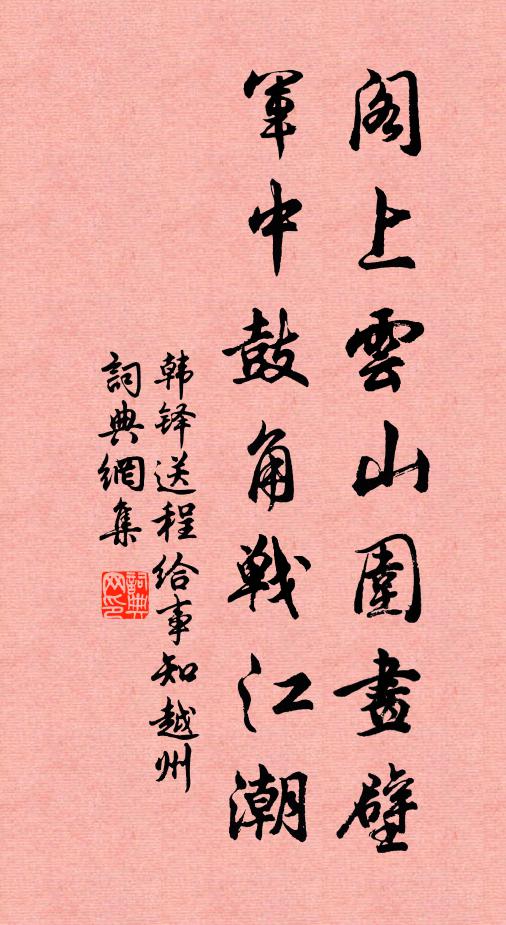 阁上雲山圍畫壁
軍中鼓角戰江潮
韩铎送程给事知越州
詞典網集
詞典网印